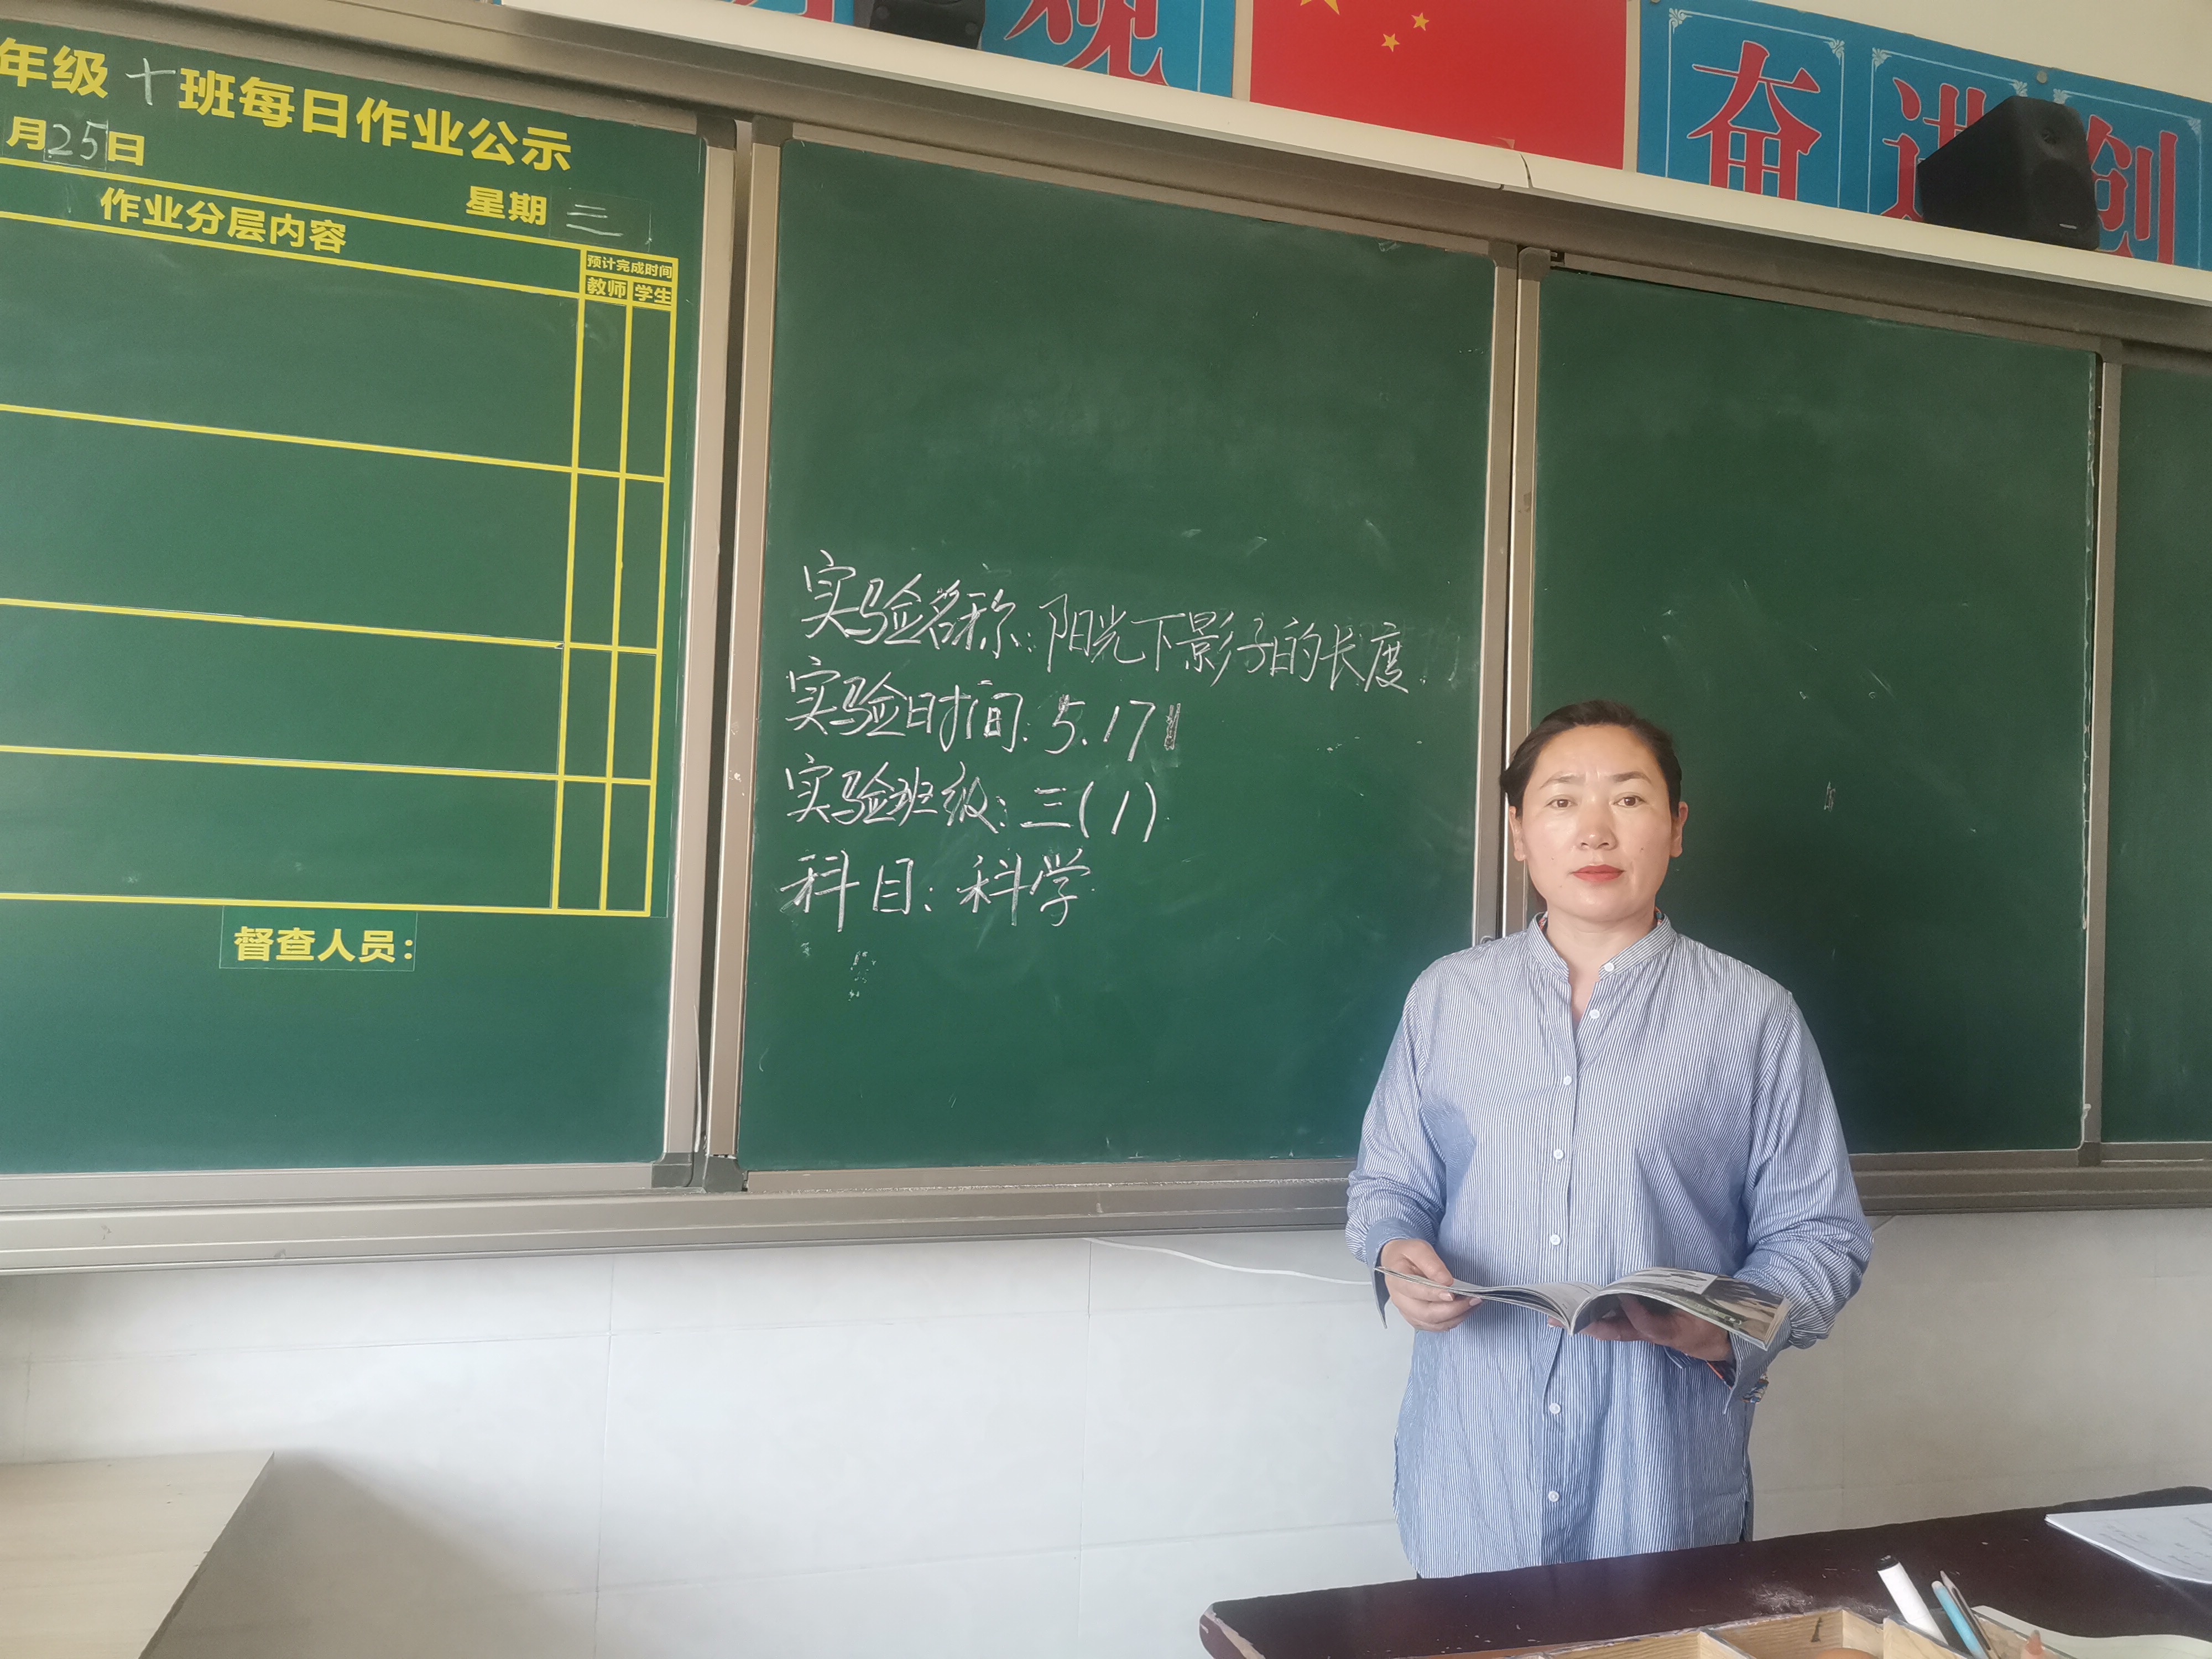 观
奋进创
年级十班每日作业公示
月25日
星期三
作业分层内容
预计完成时间
教师 学生
督查人员：
实验名称：阳光下影子的长度
实验时间：5.17
实验班级：三(1)
科目：科学